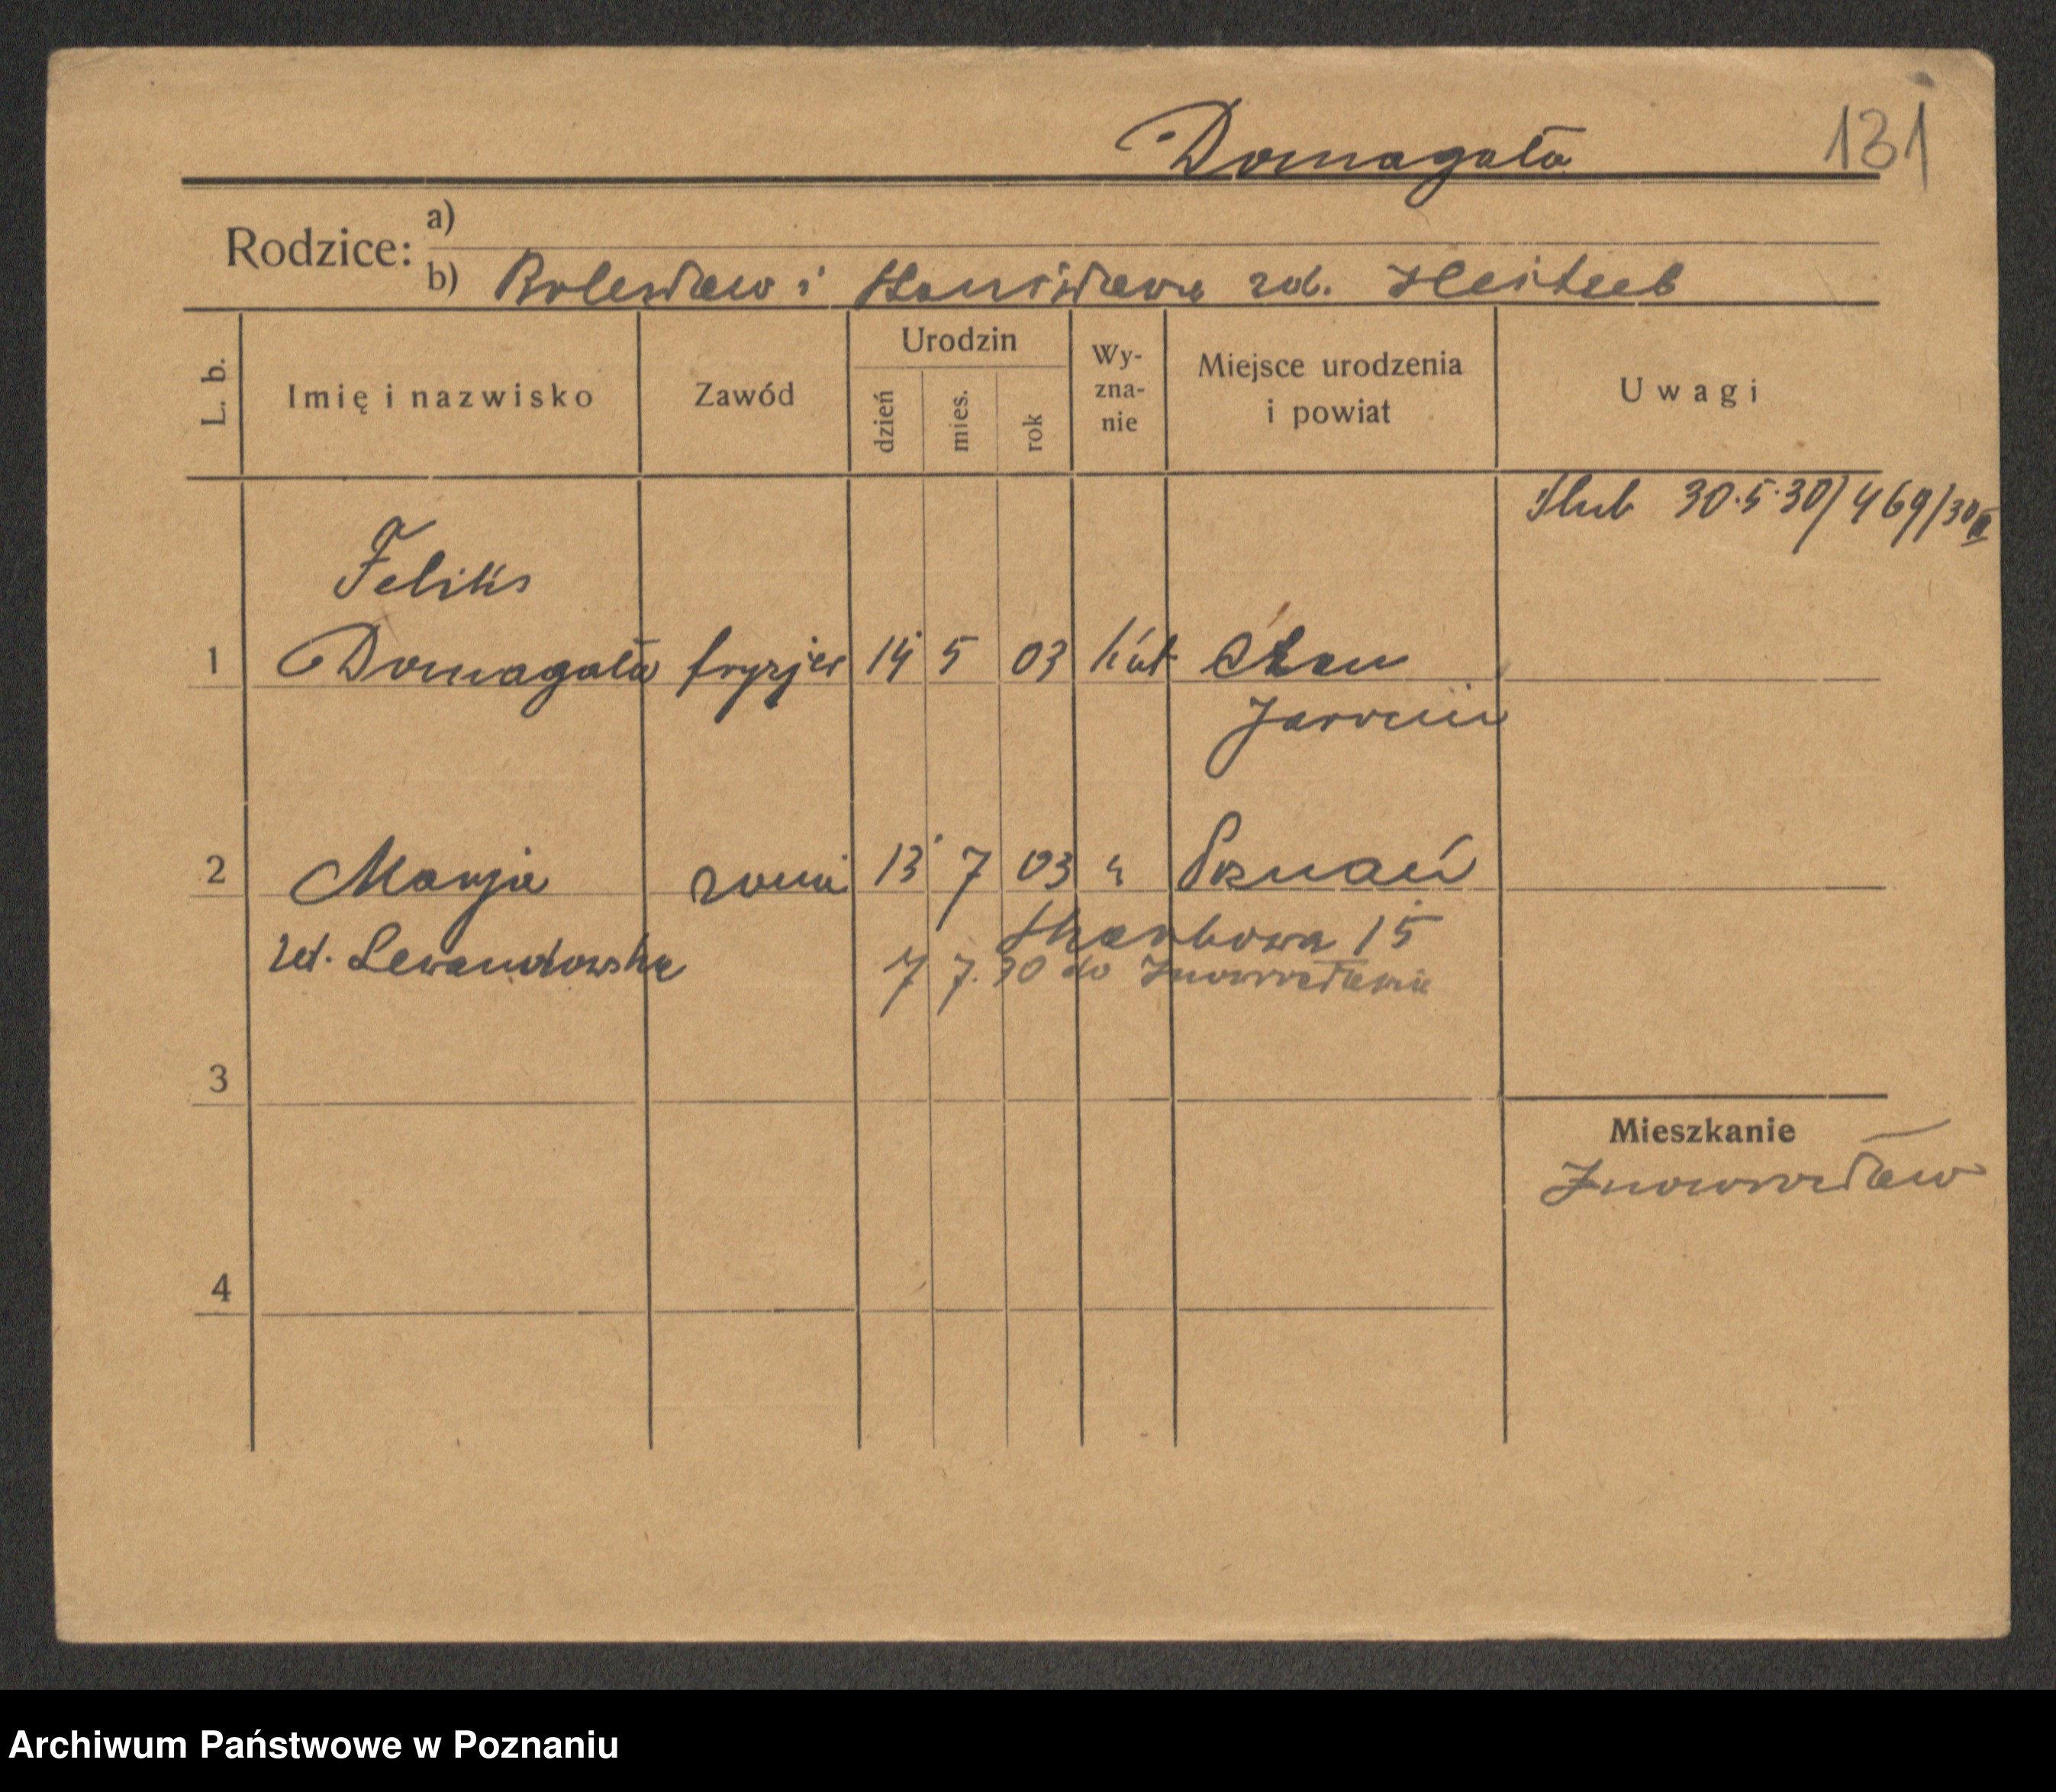 Domagała 131
Rodzice: a)
b) Bolesław i Stanisława zd.
L. b. Imię i nazwisko Zawód Urodzin dzień mies. rok Wy-zna-nie Miejsce urodzenia i powiat Uwagi
Ślub 30.5.30/469/30
Feliks
1 Domagała fryzjer 14 5 03 kat.
Jarocin
2 Marja żona 13 7 03 " Poznań
zd. Lewandowska Skarbowa 15
7 7.30 do Inowrocławia
3
Mieszkanie
Inowrocław
4
Archiwum Państwowe w Poznaniu